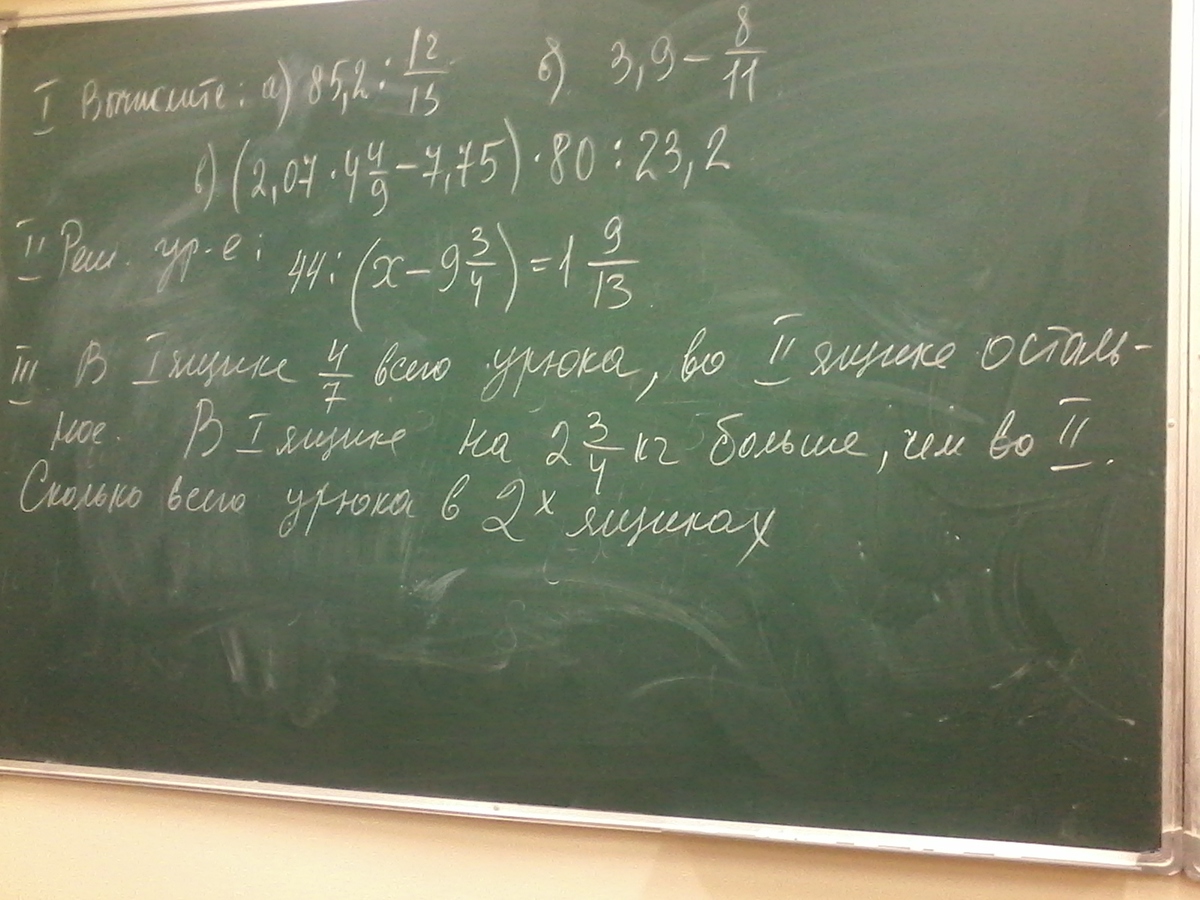 I Вычислите: а) 85,2 : 12/13 б) 3,9 − 8/11
в) (2,07 · 4 4/9 − 7,75) · 80 : 23,2
II Реш. ур-е: 44 : (x − 9 3/4) = 1 9/13
III В I ящике 4/7 всего урюка, во II ящике осталь-
ное. В I ящике на 2 3/4 кг больше, чем во II.
Сколько всего урюка в 2х ящиках